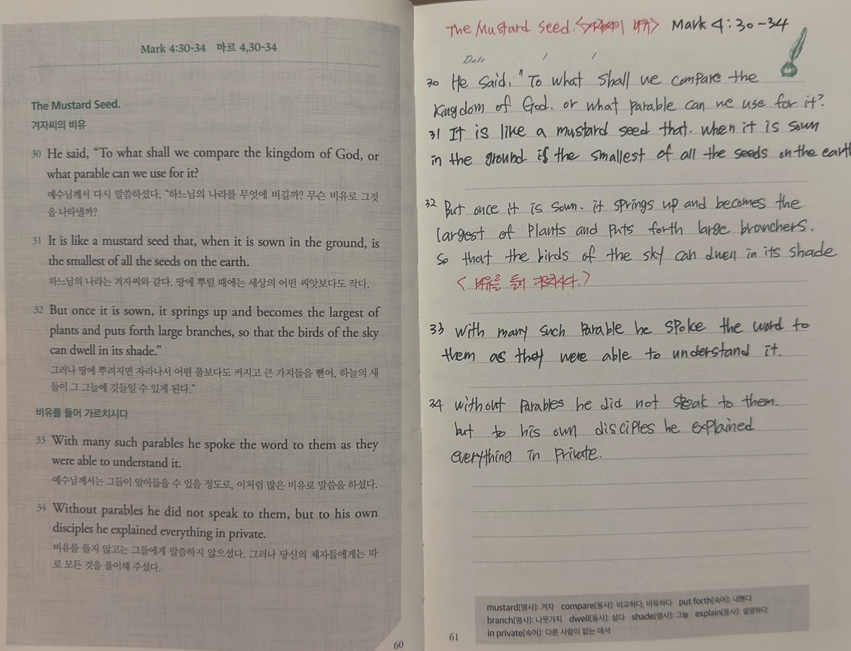 Mark 4:30-34 마르 4,30-34
The Mustard Seed.
겨자씨의 비유
30 He said, “To what shall we compare the kingdom of God, or
what parable can we use for it?
예수님께서 다시 말씀하셨다. “하느님의 나라를 무엇에 비길까? 무슨 비유로 그것
을 나타낼까?
31 It is like a mustard seed that, when it is sown in the ground, is
the smallest of all the seeds on the earth.
하느님의 나라는 겨자씨와 같다. 땅에 뿌릴 때에는 세상의 어떤 씨앗보다도 작다.
32 But once it is sown, it springs up and becomes the largest of
plants and puts forth large branches, so that the birds of the sky
can dwell in its shade.”
그러나 땅에 뿌려지면 자라나서 어떤 풀보다도 커지고 큰 가지들을 뻗어, 하늘의 새
들이 그 그늘에 깃들일 수 있게 된다.”
비유를 들어 가르치시다
33 With many such parables he spoke the word to them as they
were able to understand it.
예수님께서는 그들이 알아들을 수 있을 정도로, 이처럼 많은 비유로 말씀을 하셨다.
34 Without parables he did not speak to them, but to his own
disciples he explained everything in private.
비유를 들지 않고는 그들에게 말씀하지 않으셨다. 그러나 당신의 제자들에게는 따
로 모든 것을 풀이해 주셨다.
60
The Mustard Seed. <겨자씨의 비유> Mark 4:30-34
Date / /
30 He said, "To what shall we compare the
kingdom of God. or what parable can we use for it?
31 It is like a mustard seed that. when it is sown
in the ground is the smallest of all the seeds on the earth
32 But once it is sown. it springs up and becomes the
largest of plants and puts forth large branchers.
so that the birds of the sky can dwell in its shade
<비유를 들어 가르치시다.>
33 with many such parable he spoke the word to
them as they were able to understand it.
34 without parables he did not speak to them.
but to his own disciples he explained
everything in private.
mustard(명사): 겨자 compare(동사): 비교하다, 비유하다 put forth(숙어): 내뻗다
branch(명사): 나뭇가지 dwell(동사): 살다 shade(명사): 그늘 explain(동사): 설명하다
in private(숙어): 다른 사람이 없는 데서
61